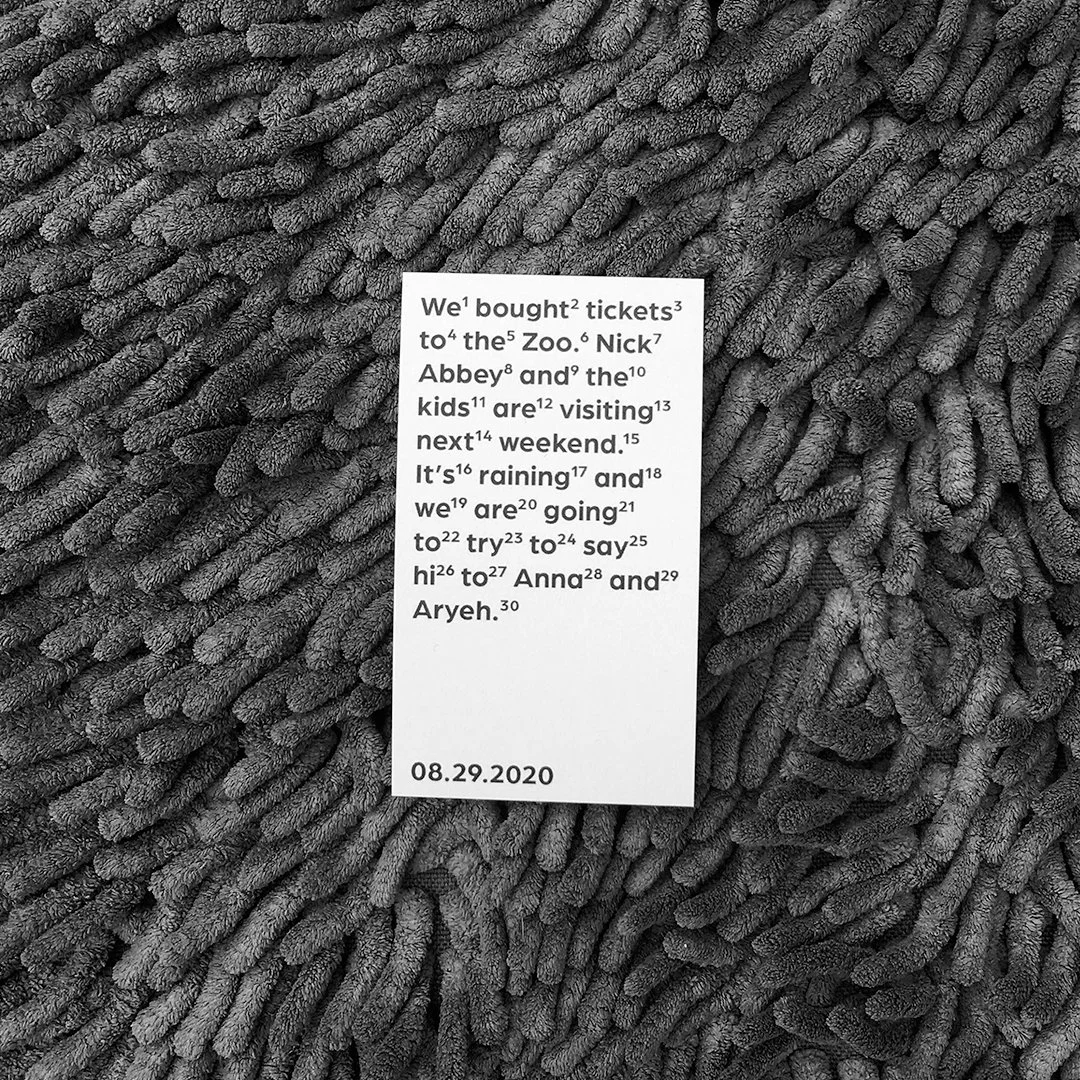 We¹ bought² tickets³
to⁴ the⁵ Zoo.⁶ Nick⁷
Abbey⁸ and⁹ the¹⁰
kids¹¹ are¹² visiting¹³
next¹⁴ weekend.¹⁵
It’s¹⁶ raining¹⁷ and¹⁸
we¹⁹ are²⁰ going²¹
to²² try²³ to²⁴ say²⁵
hi²⁶ to²⁷ Anna²⁸ and²⁹
Aryeh.³⁰
08.29.2020